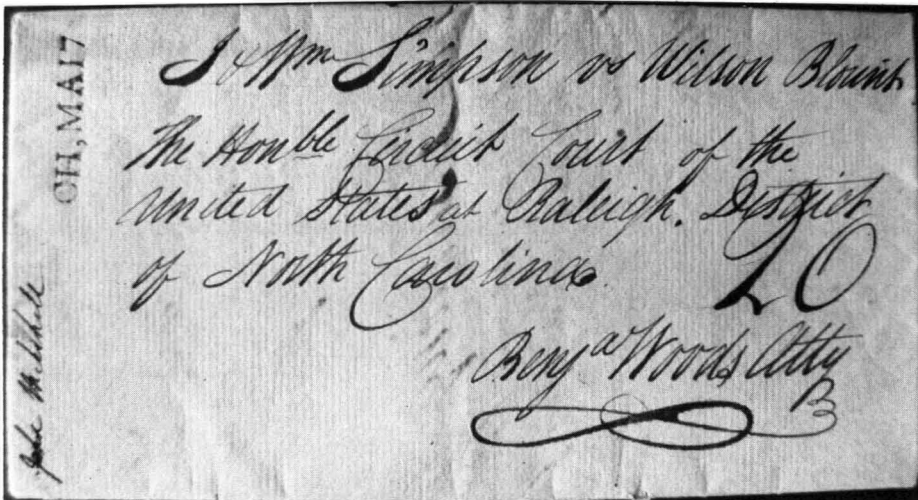 J & Wm Simpson vs Wilson Blount
The Honble Circuit Court of the
United States at Raleigh. District
of North Carolina
20
Benja Woods Atty
CH, MA17